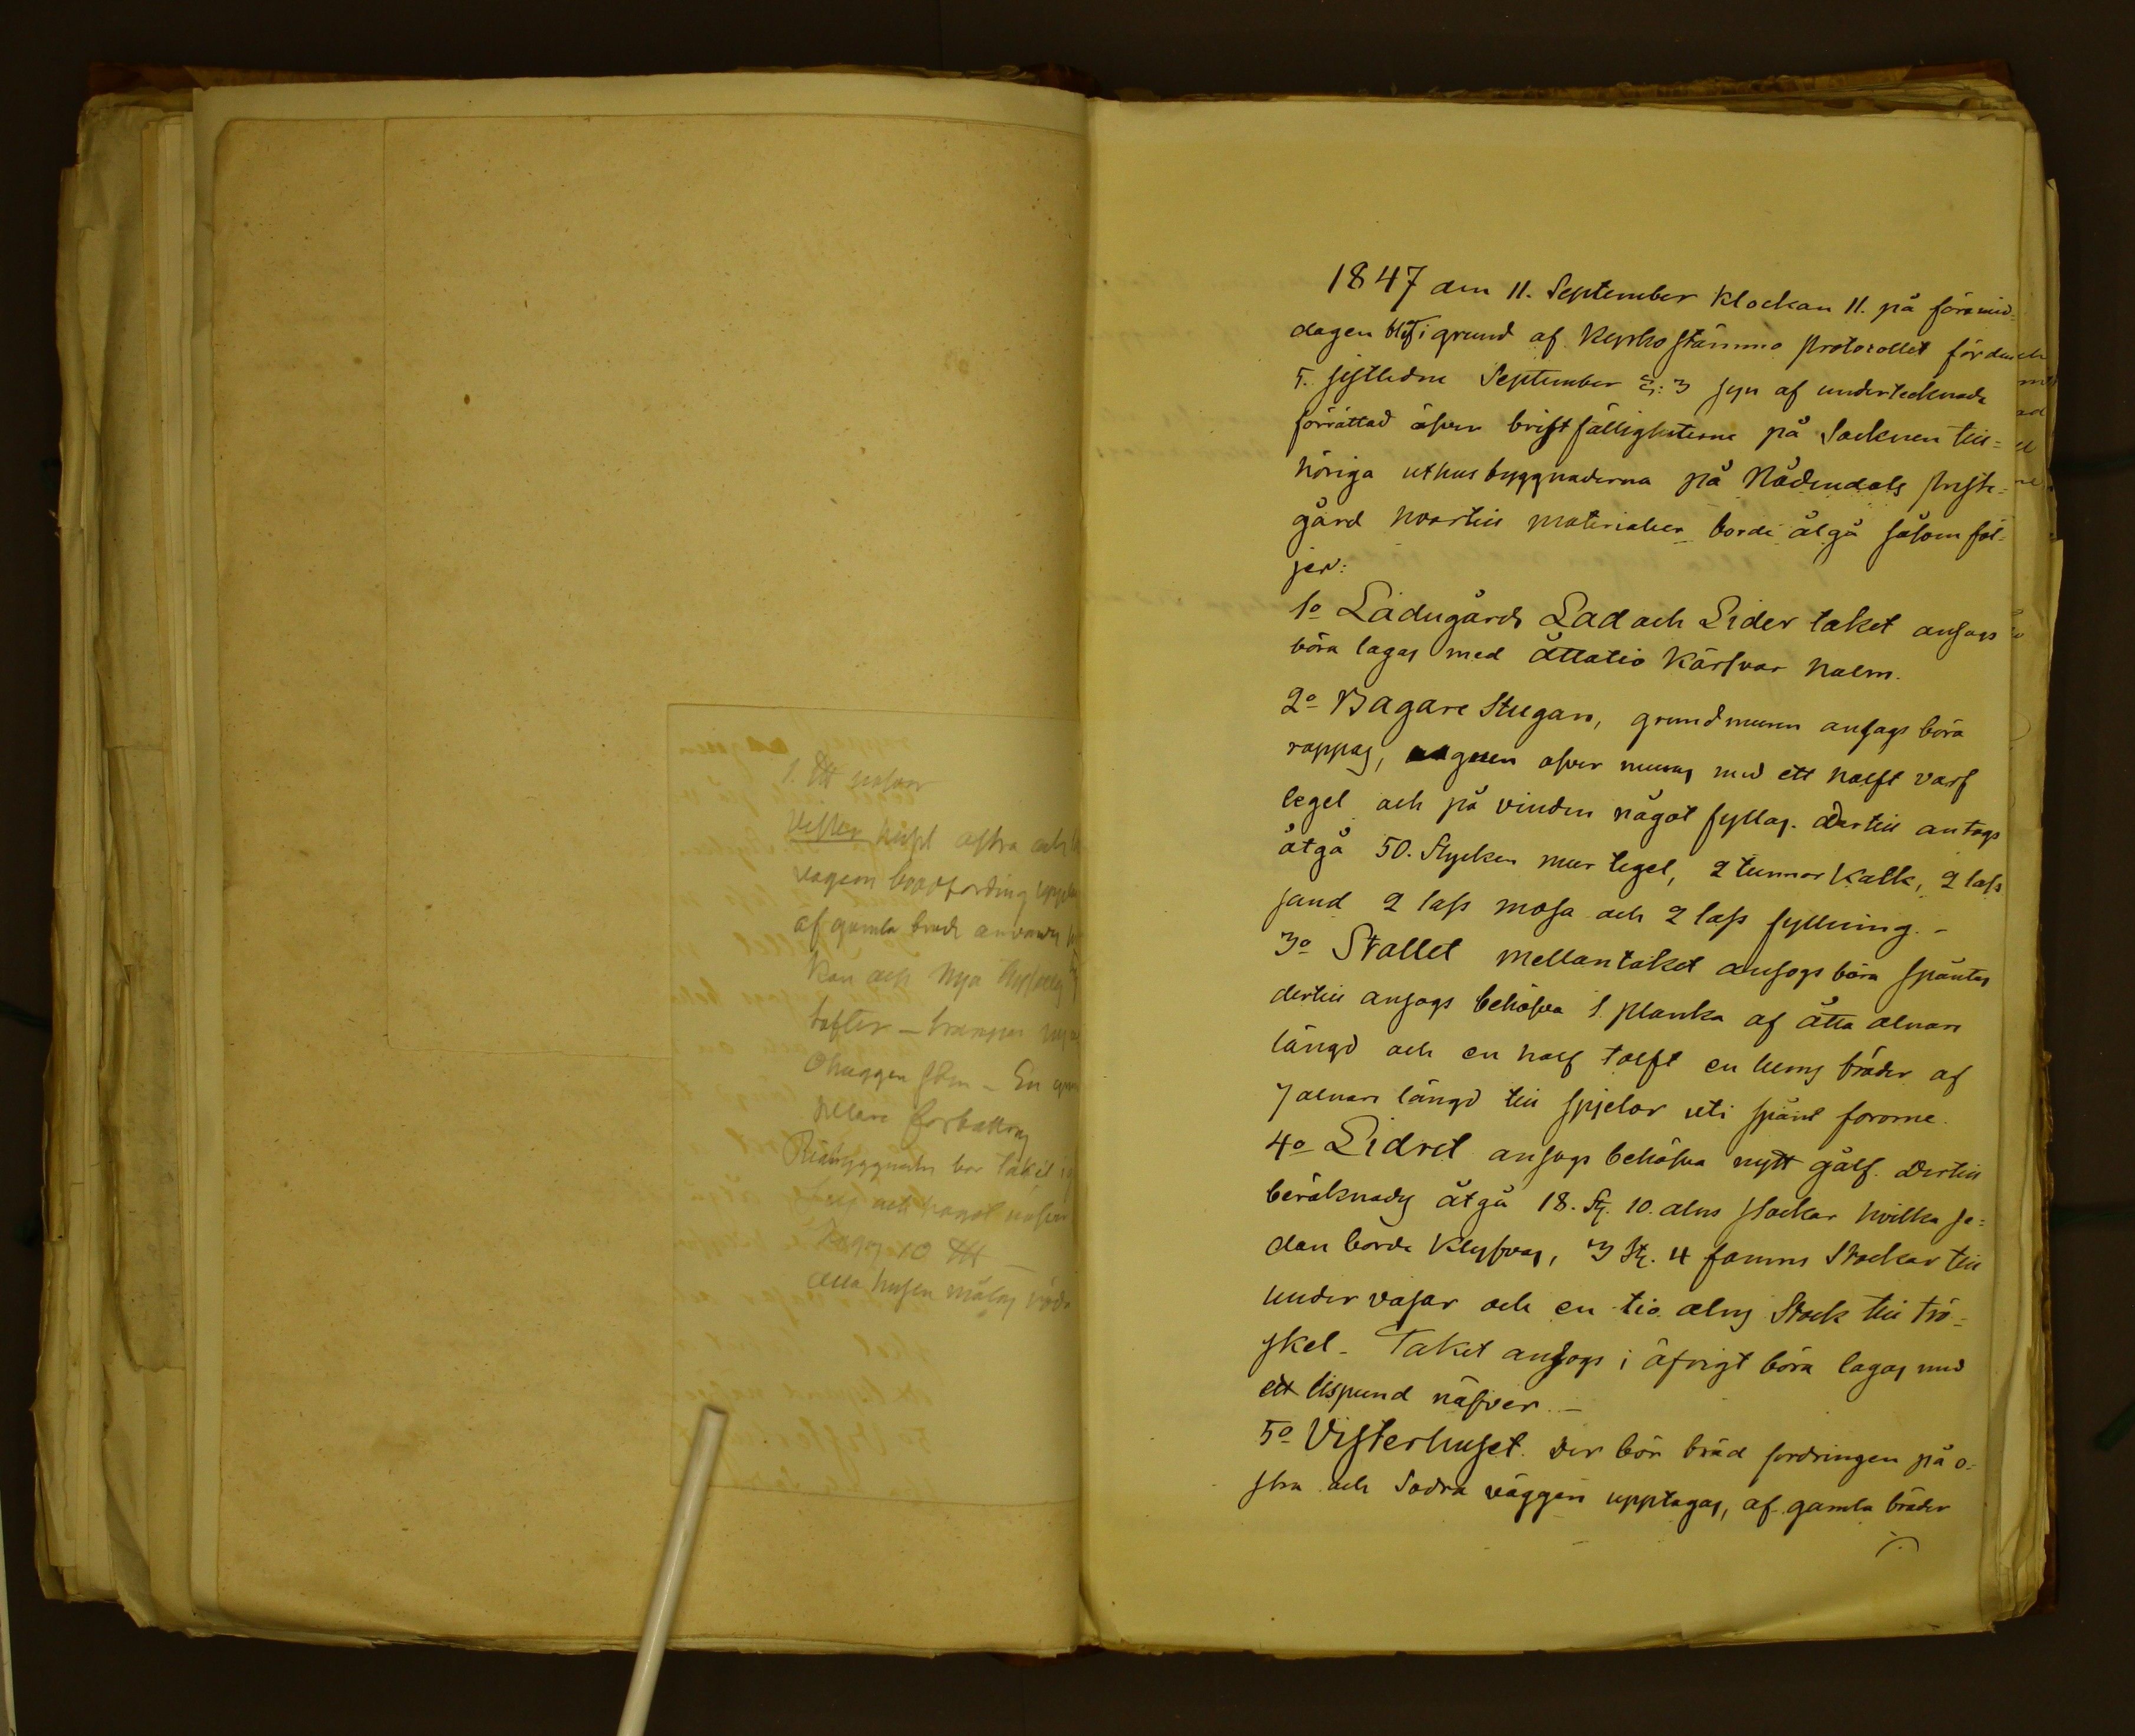 1. ℔ 
Vister huset östra och
väggen brädfordring
af gamla bräd användes
kan och nya
tofter - trappor
Ohuggen sten - En
förbättring
Riabyggnaden bör taket
och något näfver
10 ℔ -
Alla husen målas röda
1847 den 11. September klockan 11. på förmid=
dagen blef i grund af Kyrko stämmo Protocollet för den
5. sistledne September § 3 syn af undertecknade
förrättad öfver bristfälligheterne på Socknen till=
höriga uthus byggnaderna på Nådendals Preste=
gård hvartill materialier borde åtgå såsom föl=
jer:
1o Ladugårds Lad och Lider taket ansogs
böra lagas med åttatio kärfvar halm.
2o Bagare Stugan, grundmuren ansågs böra
rappas, ugnen ofvan muras med ett halft varf
tegel och på vinden något fyllas. Dertill antogs
åtgå 50. Stycken mur tegel, 2 tunnor kalk, 2 lass
sand 2 lass mosa och 2 lass fyllning. -
3o Stallet mellantaket ansogs böra spåntas
dertill ansogs behöfva 1. planka af åtta alnars
längd och en half tolft en tums bräder af
7 alnars längd till spjelor uti spånt fororne.
4o Lidret ansogs behöfva nytt gålf. Dertill
beräknades åtgå 18. St. 10. alns stockar hvilka se=
dan borde klyfvas, 3 St. 4 famns Stockar till
under vasar och en tio alns Stock till trö=
skel. Taket ansogs i öfrigt böra lagas med
ett lispund näfver. -
5o Visterhuset. Der bör bräd fordringen på ö=
stra och Sodra väggen upptagas, af gamla bräder